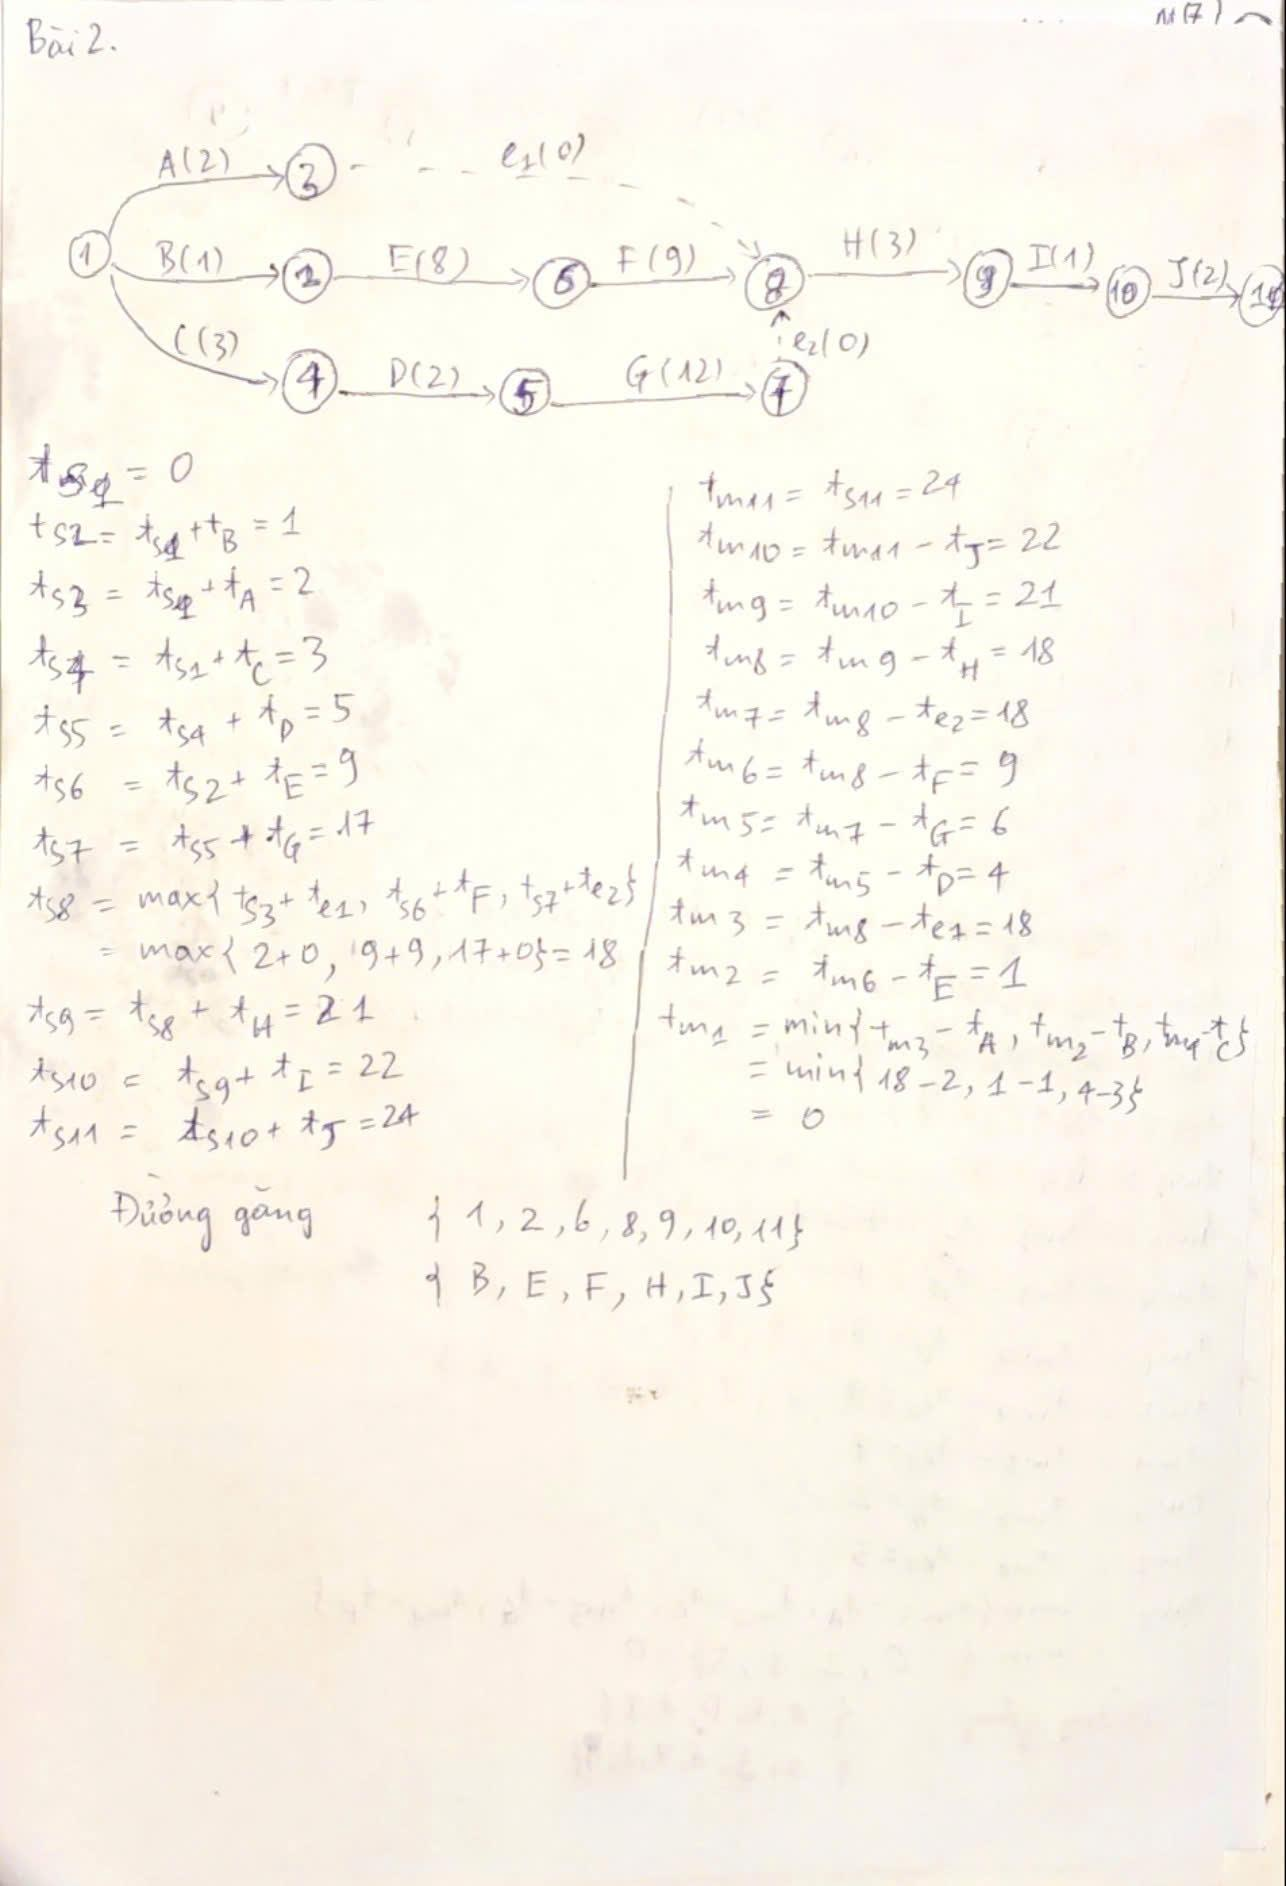 Bài 2.
A(2) 3 e1(0)
1 B(1) 2 E(8) 6 F(9) 8 H(3) 9 I(1) 10 J(2) 11
C(3) 4 D(2) 5 G(12) 7 e2(0)
ts1 = 0
ts2 = ts1 + tB = 1
ts3 = ts1 + tA = 2
ts4 = ts1 + tC = 3
ts5 = ts4 + tD = 5
ts6 = ts2 + tE = 9
ts7 = ts5 + tG = 17
ts8 = max{ ts3 + te1, ts6 + tF, ts7 + te2}
= max{ 2+0, 9+9, 17+0} = 18
ts9 = ts8 + tH = 21
ts10 = ts9 + tI = 22
ts11 = ts10 + tJ = 24
tm11 = ts11 = 24
tm10 = tm11 - tJ = 22
tm9 = tm10 - tI = 21
tm8 = tm9 - tH = 18
tm7 = tm8 - te2 = 18
tm6 = tm8 - tF = 9
tm5 = tm7 - tG = 6
tm4 = tm5 - tD = 4
tm3 = tm8 - te1 = 18
tm2 = tm6 - tE = 1
tm1 = min{ tm3 - tA, tm2 - tB, tm4 - tC}
= min{ 18-2, 1-1, 4-3}
= 0
Đường găng { 1, 2, 6, 8, 9, 10, 11}
{ B, E, F, H, I, J}